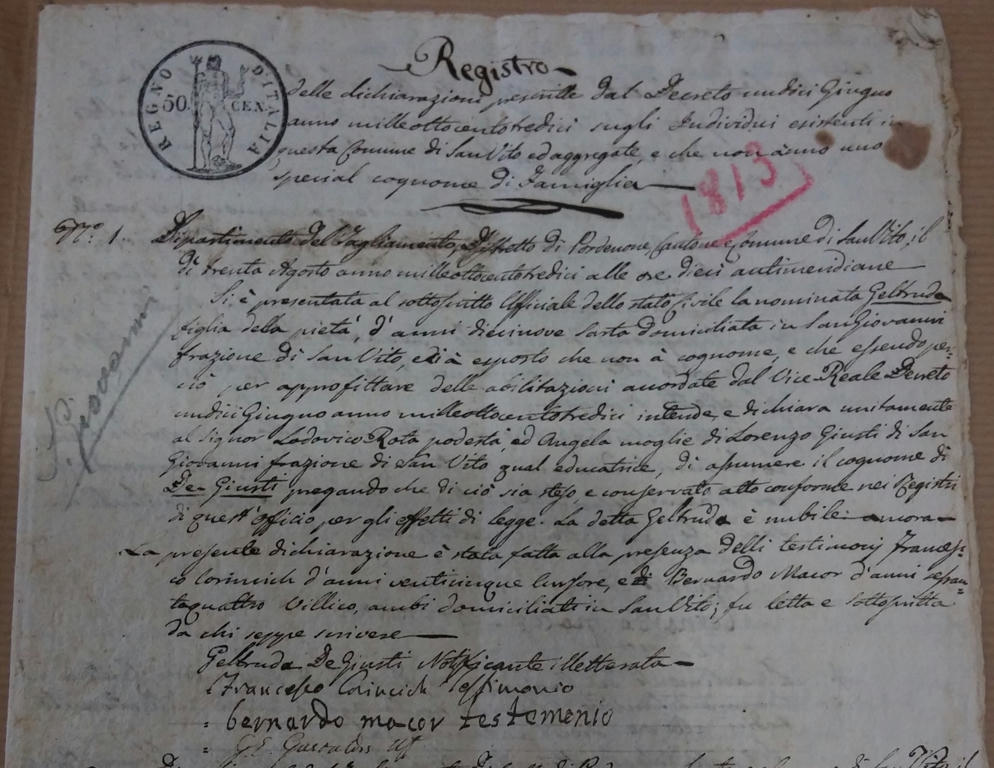 Registro
REGNO D'ITALIA
50. CEN.
delle dichiarazioni prescritte dal Decreto undici Giugno
anno milleottocentotredici sugli Individui esistenti in
questa Comune di San Vito ed aggregate, e che non anno uno
special cognome di Famiglia
1813
N.º 1. Dipartimento del Tagliamento, Distretto di Pordenone Cantone e Comune di San Vito, il
di trenta Agosto anno milleottocentotredici alle ore dieci antimeridiane
Si è presentata al sottoscritto Ufficiale dello stato Civile la nominata Geltruda
figlia della pietà, d'anni diecinove Sarta domiciliata in San Giovanni
frazione di San Vito, ed à esposto che non à cognome, e che essendo per-
ciò per approfittare delle abilitazioni accordate dal Vice Reale Decreto
undici Giugno anno milleottocentotredici intende, e dichiara unitamente
al Signor Lodovico Rota podestà, ed Angela moglie di Lorenzo Giusti di San
Giovanni frazione di San Vito qual educatrice, di assumere il cognome di
De Giusti pregando che di ciò sia steso e conservato atto conforme nei Registri
di quest'officio per gli effetti di legge. La detta Geltruda è nubile ancora
La presente dichiarazione è stata fatta alla presenza delli testimonj Frances-
co Corincich d'anni venticinque Cursore, e di Bernardo Macor d'anni sessan-
taquattro Villico, ambi domiciliati in San Vito; fu letta e sottoscritta
da chi seppe scrivere
Geltruda De Giusti Notificante illetterata
Francesco Corincich testimonio
bernardo macor testemenio
S. Giovanni